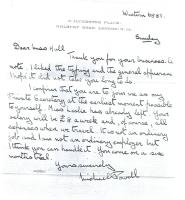 Western 1981.
Sunday
Dear Miss Hall
Thank you for your business is
note. I liked the typing and the general appearance
I hope it did not take you long to do.
I confirm that you are to join me as my
Private Secretary at the earliest moment possible
to yourself. Miss has already left. Your
salary will be £8 a week and, of course, all
expenses when we travel. It is not an ordinary
job and I am not an ordinary employer, but
I think you can handle it. You come on a six
months trial.
Yours sincerely
Michael Powell